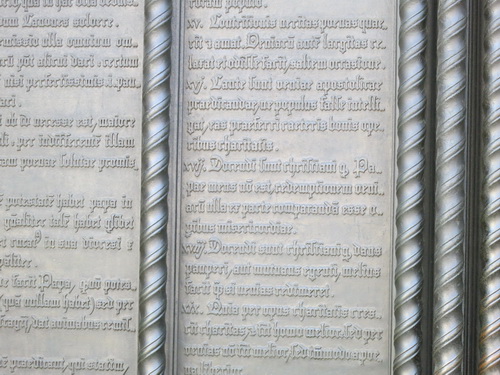 Canones solvere.
missio ulla omnium om
arū pōt alicui dari. certum
nisi perfectissimis i. pau
ari.
ob id necesse est, maiorē
per indifferentē illam
am poenae solutae promis
potestatē habet papa in
gñaliter talē habet q̄libet
in sua diocesi &
cialiter.
facit Papa, quod potes
(quā nullam habet) sed per
fragij, dat animabus remis
praedicant, qui statim,
populo.
Contritionis veritas poenas quae
rit & amat. Veniarū autē largitas re
laxat et odisse facit, saltem occasione.
xlj. Caute sunt veniae apostolicae
praedicandae, ne populus false intelli
gat, eas praeferri caeteris bonis ope
ribus charitatis.
xlij. Docendi sunt christiani q, Pa
pae mens nō est, redemptionem veni
arū ulla ex parte comparandā esse
ribus misericordiae.
xliij. Docendi sunt christiani q, dans
pauperi, aut mutuans egenti, melius
facit q̄ si venias redimeret.
Quia per opus charitatis cres
cit charitas, & fit homo melior, sed per
venias nō fit melior, sed tm̄modo a poe
na liberior.